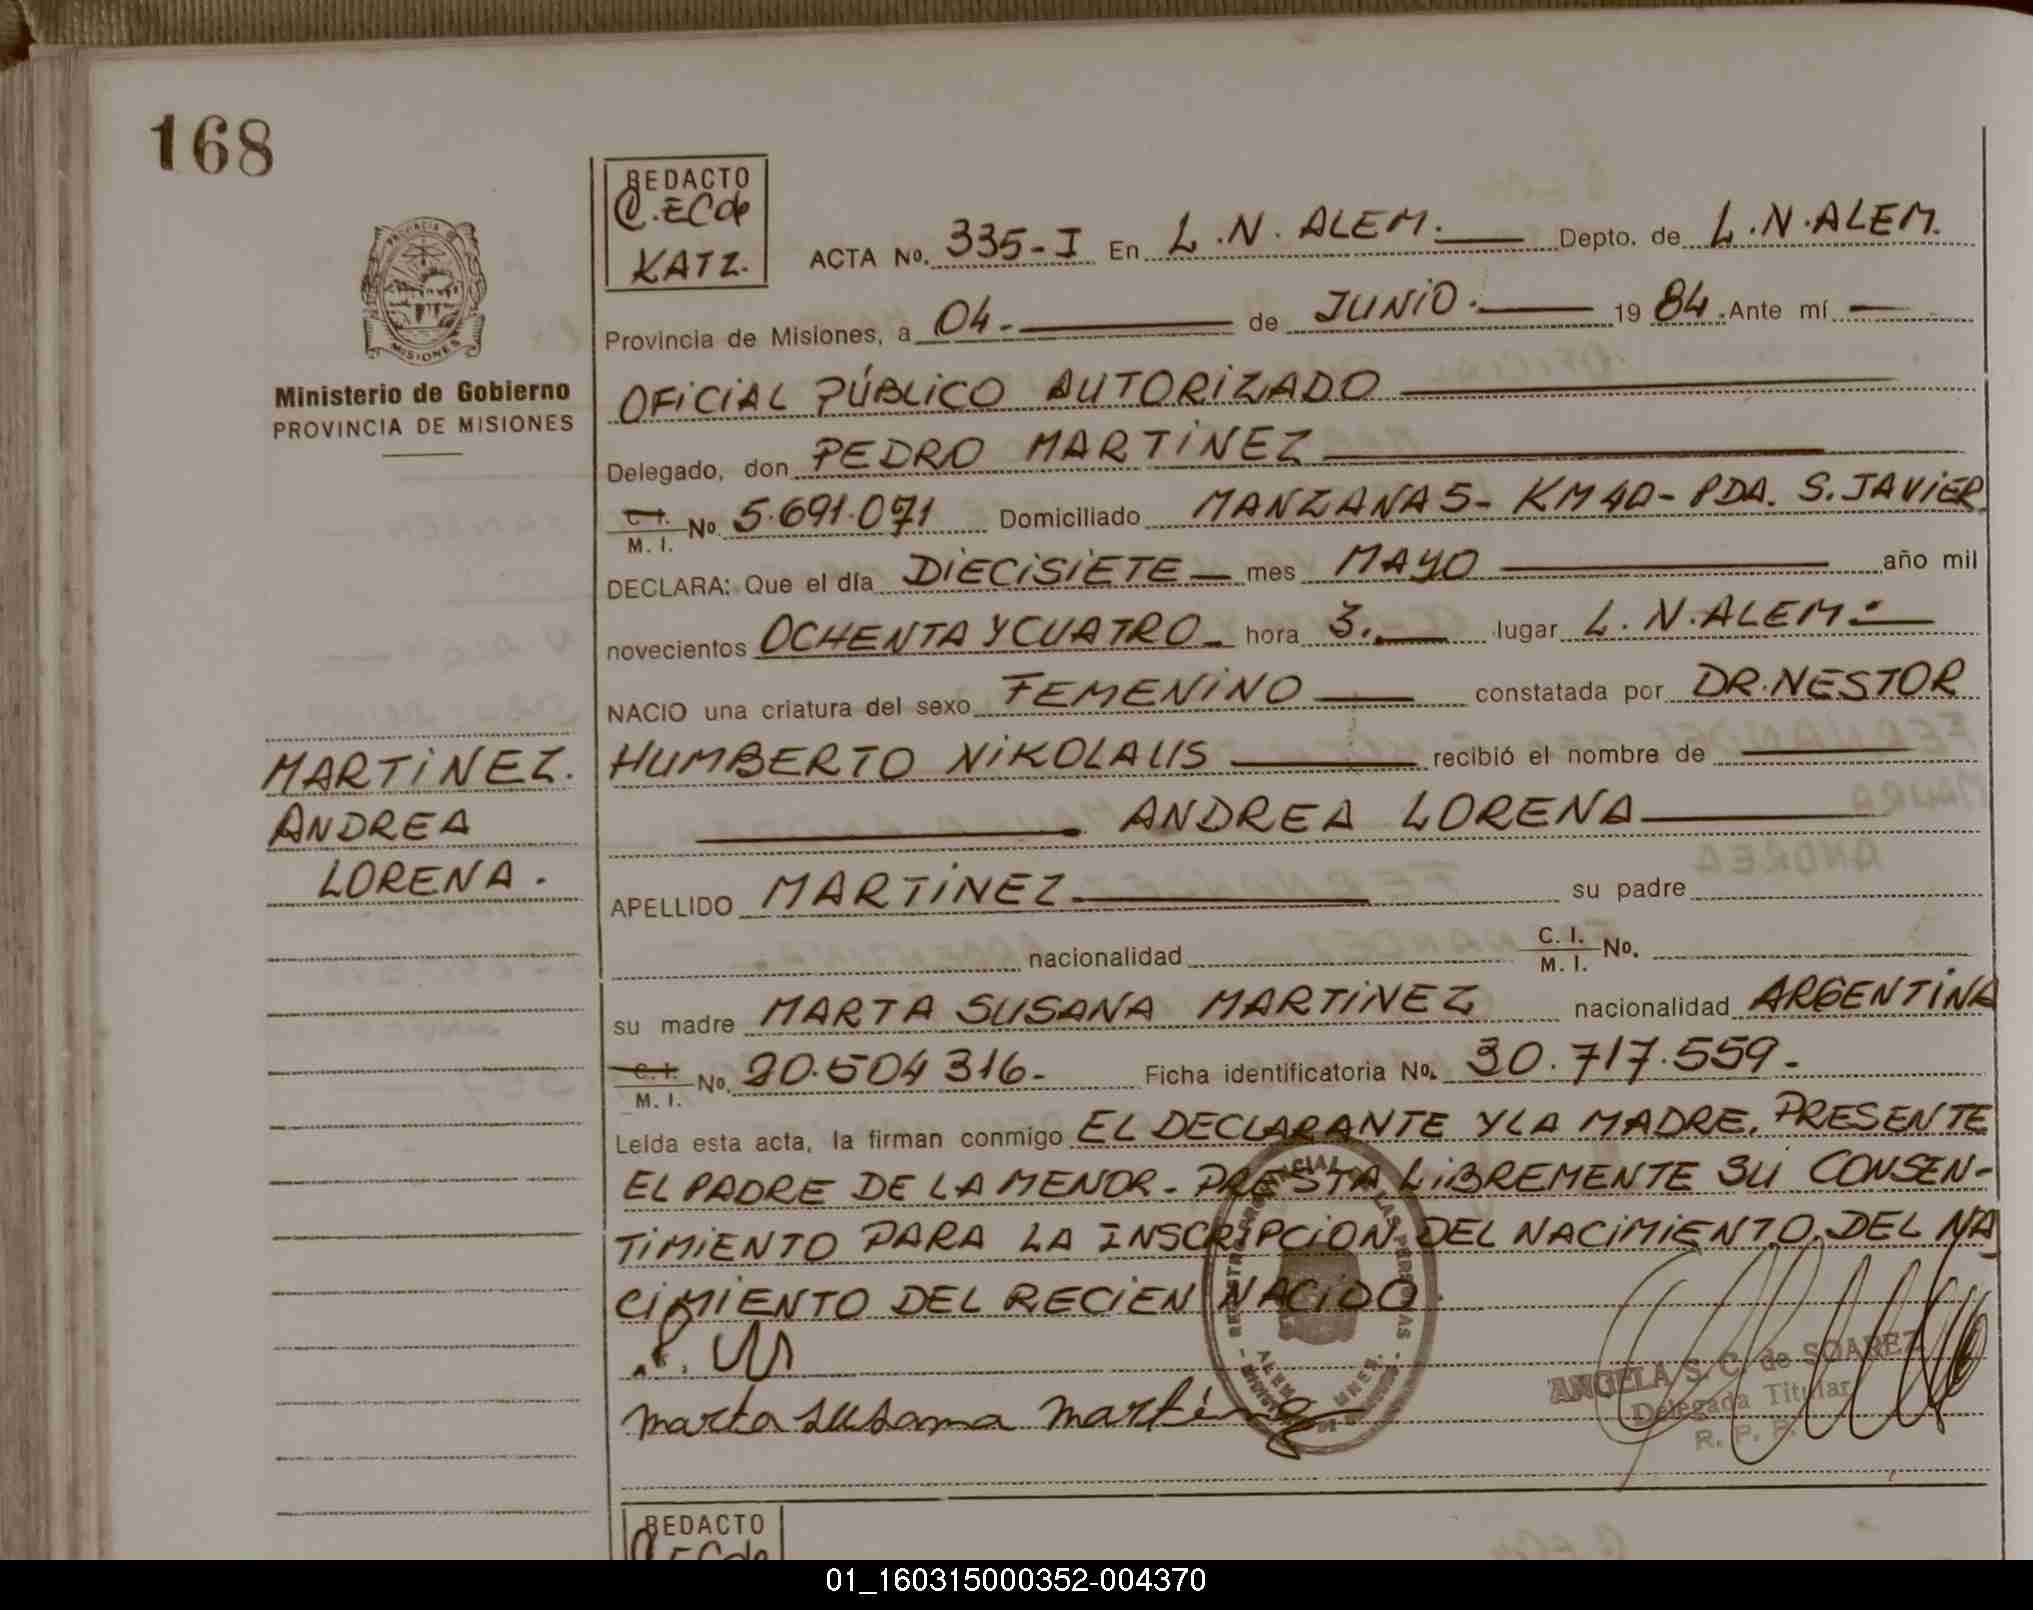 168
PROVINCIA DE
MISIONES
Ministerio de Gobierno
PROVINCIA DE MISIONES
MARTINEZ.
ANDREA
LORENA.
REDACTO
C.ECde
KATZ.
ACTA No. 335-I En L.N. ALEM. Depto. de L.N.ALEM.
Provincia de Misiones, a 04.- de JUNIO.- 19 84. Ante mí
OFICIAL PÚBLICO AUTORIZADO
Delegado, don PEDRO MARTINEZ
C. I. / M. I. No. 5.691.071 Domiciliado MANZANA 5- KM 40- PDA. S. JAVIER
DECLARA: Que el día DIECISIETE mes MAYO año mil
novecientos OCHENTA Y CUATRO hora 3. lugar L. N. ALEM.-
NACIO una criatura del sexo FEMENINO constatada por DR. NESTOR
HUMBERTO NIKOLAUS recibió el nombre de
ANDREA LORENA
APELLIDO MARTINEZ su padre
nacionalidad C. I. / M. I. No.
su madre MARTA SUSANA MARTINEZ nacionalidad ARGENTINA
C. I. / M. I. No. 20.504 316.- Ficha identificatoria No. 30.717.559.-
Leída esta acta, la firman conmigo EL DECLARANTE Y LA MADRE. PRESENTE
EL PADRE DE LA MENOR- PRESTA LIBREMENTE SU CONSEN-
TIMIENTO PARA LA INSCRIPCION DEL NACIMIENTO. DEL NA
CIMIENTO DEL RECIEN NACIDO.
marta susana martinez
ANGELA S. C. de SOAREZ
Delegada Titular
R. P. P.
REDACTO
C.ECde
01_160315000352-004370